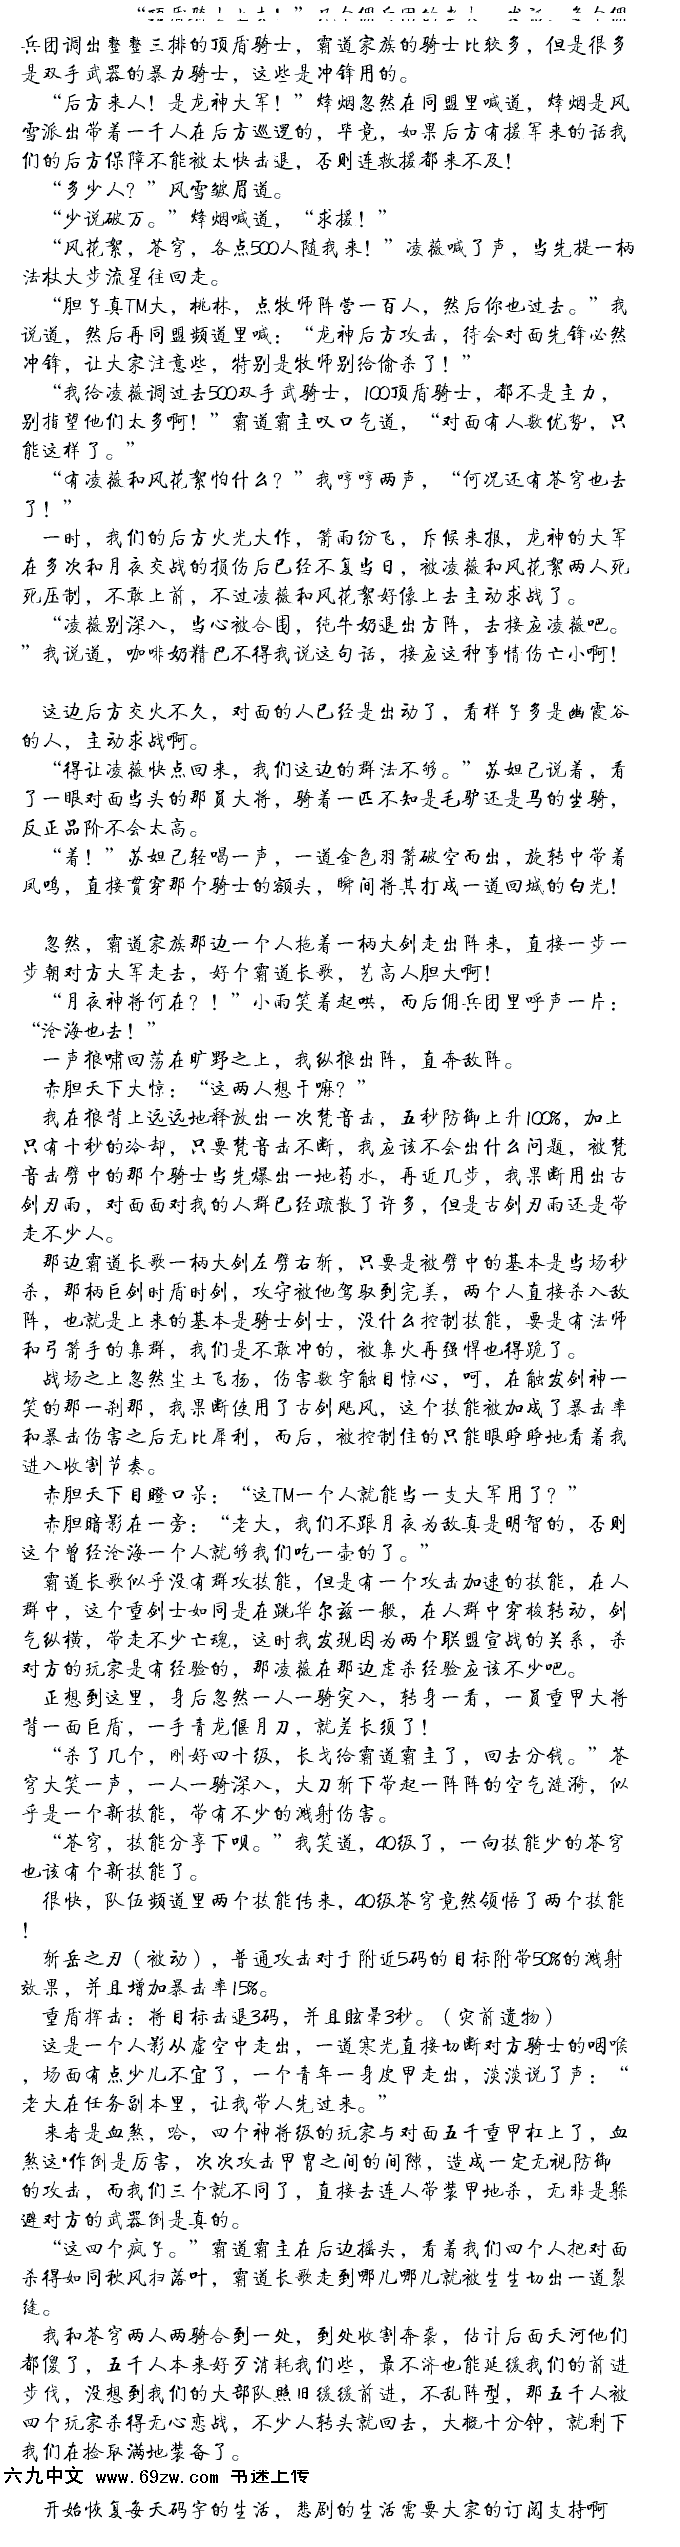 兵团调出整整三排的顶盾骑士，霸道家族的骑士比较多，但是很多
是双手武器的暴力骑士，这些是冲锋用的。
“后方来人！是龙神大军！”烽烟忽然在同盟里喊道，烽烟是风
雪派出带着一千人在后方巡逻的，毕竟，如果后方有援军来的话我
们的后方保障不能被太快击退，否则连救援都来不及！
“多少人？”风雪皱眉道。
“少说破万。”烽烟喊道，“求援！”
“风花絮，苍穹，各点500人随我来！”凌薇喊了声，当先提一柄
法杖大步流星往回走。
“胆子真TM大，桃林，点牧师阵营一百人，然后你也过去。”我
说道，然后再同盟频道里喊：“龙神后方攻击，待会对面先锋必然
冲锋，让大家注意些，特别是牧师别给偷杀了！”
“我给凌薇调过去500双手武骑士，100顶盾骑士，都不是主力，
别指望他们太多啊！”霸道霸主叹口气道，“对面有人数优势，只
能这样了。”
“有凌薇和风花絮怕什么？”我哼哼两声，“何况还有苍穹也去
了！”
一时，我们的后方火光大作，箭雨纷飞，斥候来报，龙神的大军
在多次和月夜交战的损伤后已经不复当日，被凌薇和风花絮两人死
死压制，不敢上前，不过凌薇和风花絮好像上去主动求战了。
“凌薇别深入，当心被合围，纯牛奶退出方阵，去接应凌薇吧。
”我说道，咖啡奶精巴不得我说这句话，接应这种事情伤亡小啊！
这边后方交火不久，对面的人已经是出动了，看样子多是幽霞谷
的人，主动求战啊。
“得让凌薇快点回来，我们这边的群法不够。”苏妲己说着，看
了一眼对面当头的那员大将，骑着一匹不知是毛驴还是马的坐骑，
反正品阶不会太高。
“着！”苏妲己轻喝一声，一道金色羽箭破空而出，旋转中带着
凤鸣，直接贯穿那个骑士的额头，瞬间将其打成一道回城的白光！
忽然，霸道家族那边一个人拖着一柄大剑走出阵来，直接一步一
步朝对方大军走去，好个霸道长歌，艺高人胆大啊！
“月夜神将何在？！”小雨笑着起哄，而后佣兵团里呼声一片：
“沧海也去！”
一声狼啸回荡在旷野之上，我纵狼出阵，直奔敌阵。
赤胆天下大惊：“这两人想干嘛？”
我在狼背上远远地释放出一次梵音击，五秒防御上升100%，加上
只有十秒的冷却，只要梵音击不断，我应该不会出什么问题，被梵
音击劈中的那个骑士当先爆出一地药水，再近几步，我果断用出古
剑刃雨，对面面对我的人群已经疏散了许多，但是古剑刃雨还是带
走不少人。
那边霸道长歌一柄大剑左劈右斩，只要是被劈中的基本是当场秒
杀，那柄巨剑时盾时剑，攻守被他驾驭到完美，两个人直接杀入敌
阵，也就是上来的基本是骑士剑士，没什么控制技能，要是有法师
和弓箭手的集群，我们是不敢冲的，被集火再强悍也得跪了。
战场之上忽然尘土飞扬，伤害数字触目惊心，呵，在触发剑神一
笑的那一刹那，我果断使用了古剑飓风，这个技能被加成了暴击率
和暴击伤害之后无比犀利，而后，被控制住的只能眼睁睁地看着我
进入收割节奏。
赤胆天下目瞪口呆：“这TM一个人就能当一支大军用了？”
赤胆暗影在一旁：“老大，我们不跟月夜为敌真是明智的，否则
这个曾经沧海一个人就够我们吃一壶的了。”
霸道长歌似乎没有群攻技能，但是有一个攻击加速的技能，在人
群中，这个重剑士如同是在跳华尔兹一般，在人群中穿梭转动，剑
气纵横，带走不少亡魂，这时我发现因为两个联盟宣战的关系，杀
对方的玩家是有经验的，那凌薇在那边虐杀经验应该不少吧。
正想到这里，身后忽然一人一骑突入，转身一看，一员重甲大将
背一面巨盾，一手青龙偃月刀，就差长须了！
“杀了几个，刚好四十级，长戈给霸道霸主了，回去分钱。”苍
穹大笑一声，一人一骑深入，大刀斩下带起一阵阵的空气涟漪，似
乎是一个新技能，带有不少的溅射伤害。
“苍穹，技能分享下呗。”我笑道，40级了，一向技能少的苍穹
也该有个新技能了。
很快，队伍频道里两个技能传来，40级苍穹竟然领悟了两个技能
！
斩岳之刃（被动），普通攻击对于附近5码的目标附带50%的溅射
效果，并且增加暴击率15%。
重盾挥击：将目标击退3码，并且眩晕3秒。（灾前遗物）
这是一个人影从虚空中走出，一道寒光直接切断对方骑士的咽喉
，场面有点少儿不宜了，一个青年一身皮甲走出，淡淡说了声：“
老大在任务副本里，让我带人先过来。”
来者是血煞，哈，四个神将级的玩家与对面五千重甲杠上了，血
煞这*作倒是厉害，次次攻击甲胄之间的间隙，造成一定无视防御
的攻击，而我们三个就不同了，直接去连人带装甲地杀，无非是躲
避对方的武器倒是真的。
“这四个疯子。”霸道霸主在后边摇头，看着我们四个人把对面
杀得如同秋风扫落叶，霸道长歌走到哪儿哪儿就被生生切出一道裂
缝。
我和苍穹两人两骑合到一处，到处收割奔袭，估计后面天河他们
都傻了，五千人本来好歹消耗我们些，最不济也能延缓我们的前进
步伐，没想到我们的大部队照旧缓缓前进，不乱阵型，那五千人被
四个玩家杀得无心恋战，不少人转头就回去，大概十分钟，就剩下
我们在捡取满地装备了。
六九中文 www.69zw.com 书迷上传
开始恢复每天码字的生活，悲剧的生活需要大家的订阅支持啊